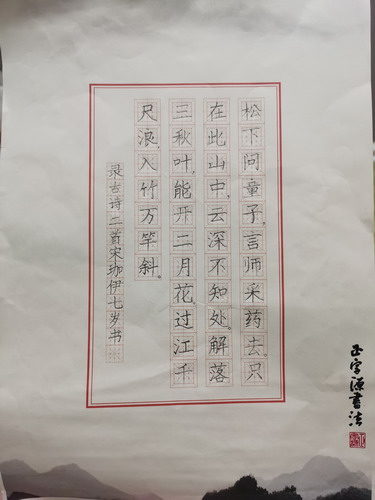 松下问童子，言师采药去。只
在此山中，云深不知处。解落
三秋叶，能开二月花。过江千
尺浪，入竹万竿斜。
录古诗二首宋珈伊七岁书
正字源書法